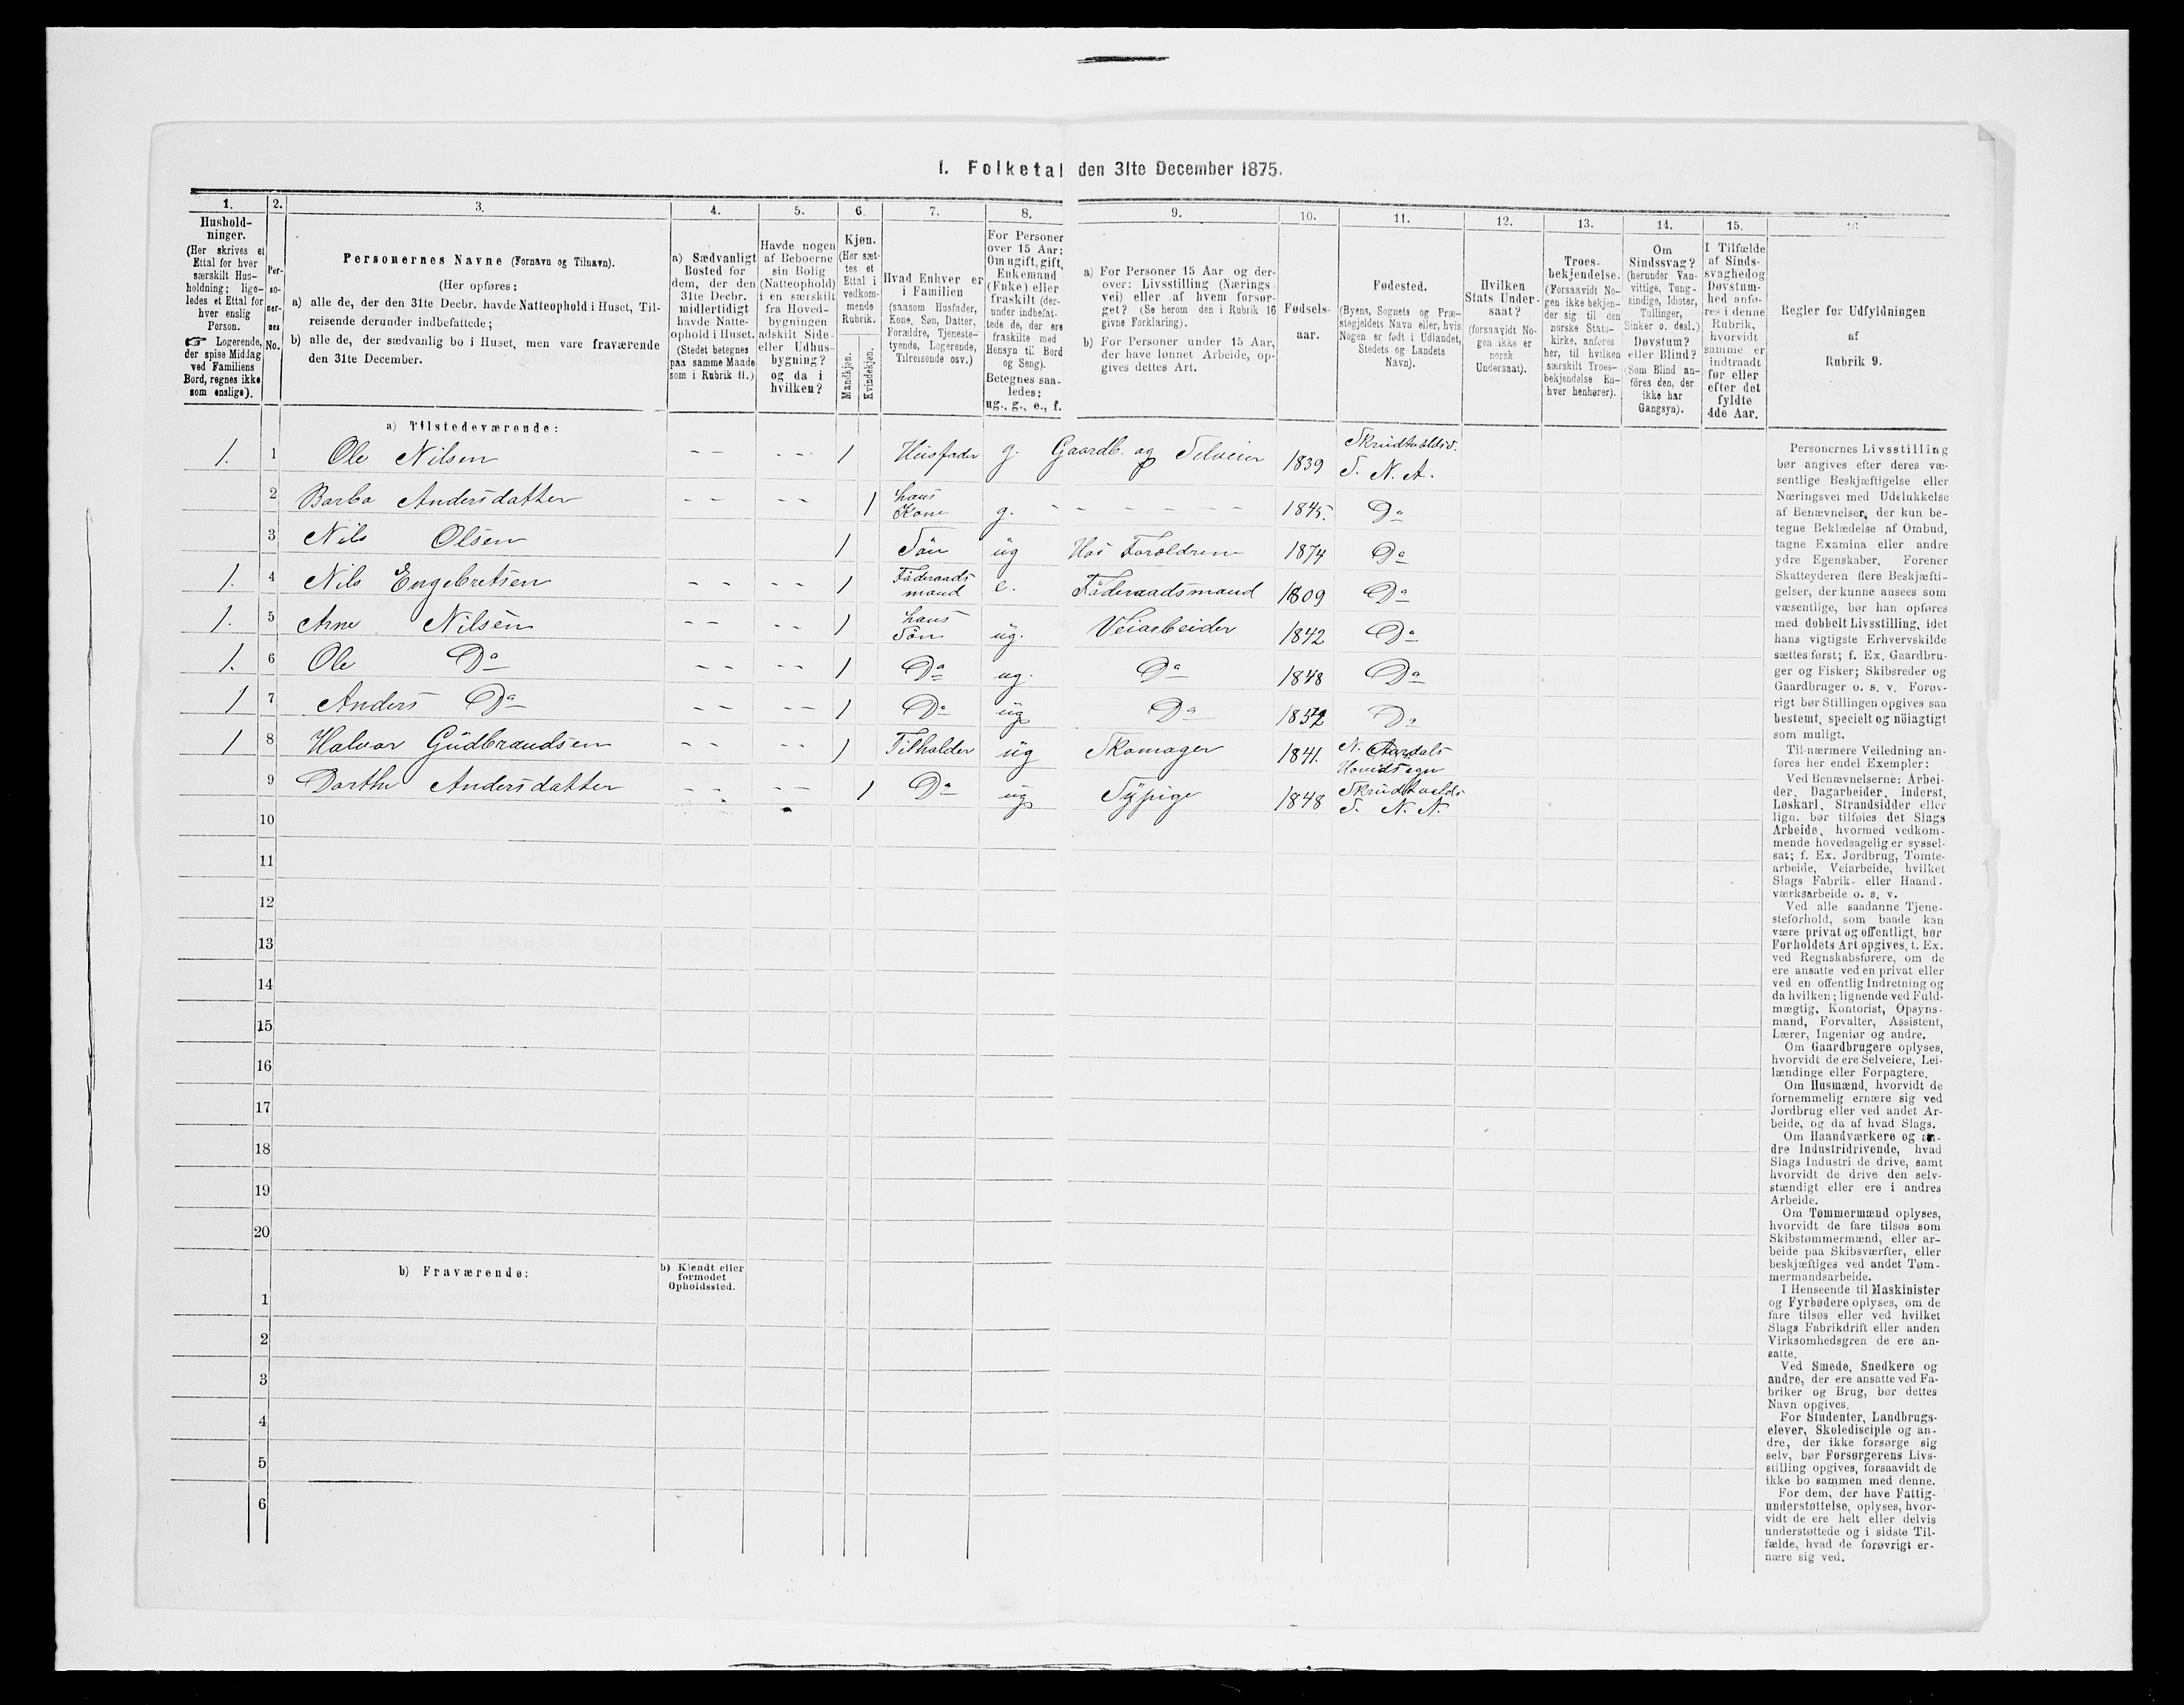 I. Folketal den 31te December 1875.
1. 2. 3. 4. 5. 6. 7. 8. 9. 10. 11. 12. 13. 14. 15. 16
Hushold-
ninger.
(Her skrives et
Ettal for hver
særskilt Hus-
holdning; lige-
ledes et Ettal for
hver enslig
Person.
☞ Logerende,
der spise Middag
ved Familiens
Bord, regnes ikke
som enslige).
Per-
so-
ner-
nes
No.
Personernes Navne (Fornavn og Tilnavn).
(Her opføres:
a) alle de, der den 31te Decbr. havde Natteophold i Huset, Til-
reisende derunder indbefattede;
b) alle de, der sædvanlig bo i Huset, men vare fraværende
den 31te December.
a) Sædvanligt
Bosted for
dem, der den
31te Decbr.
midlertidigt
havde Natte-
ophold i Huset.
(Stedet betegnes
paa samme Maade
som i Rubrik 11.)
Havde nogen
af Beboerne
sin Bolig
(Natteophold)
i en særskilt
fra Hoved-
bygningen
adskilt Side-
eller Udhus-
bygning?
og da i
hvilken?
Kjøn.
(Her sæt-
tes et
Ettal i
vedkom-
mende
Rubrik.
Mandkjøn.
Kvindekjøn.
Hvad Enhver er
i Familien
(saasom Husfader,
Kone, Søn, Datter,
Forældre, Tjeneste-
tyende, Logerende,
Tilreisende osv.)
For Personer
over 15 Aar:
Om ugift, gift,
Enkemand
(Enke) eller
fraskilt (der-
under indbefat-
tede de, der ere
fraskilte med
Hensyn til Bord
og Seng).
Betegnes saa-
ledes:
ug., g., e., f.
a) For Personer 15 Aar og der-
over: Livsstilling (Nærings-
vei) eller af hvem forsør-
get? (Se herom den i Rubrik 16
givne Forklaring).
b) For Personer under 15 Aar,
der have lønnet Arbeide, op-
gives dettes Art.
Fødsels-
aar.
Fødested.
(Byens, Sognets og Præ-
stegjeldets Navn eller, hvis
Nogen er født i Udlandet,
Stedets og Landets
Navn).
Hvilken
Stats Under-
saat?
(forsaavidt No-
gen ikke er
norsk
Undersaat).
Troes-
bekjendelse.
(Forsaavidt No-
gen ikke bekjen-
der sig til den
norske Stats-
kirke, anføres
her, til hvilken
særskilt Troes-
bekjendelse En-
hver henhører).
Om
Sindssvag?
(herunder Van-
vittige, Tung-
sindige, Idioter,
Tullinger,
Sinker o. desl.)
Døvstum?
eller Blind?
(Som Blind an-
føres den, der
ikke har
Gangsyn).
I Tilfælde
af Sinds-
svaghed og
Døvstum-
hed anfø-
res i denne
Rubrik,
hvorvidt
samme er
indtraadt
før eller
efter det
fyldte
4de Aar.
Regler for Udfyldningen
af
Rubrik 9.
a) Tilstedeværende:
1. 1 Ole Nilsen - - - - 1 Husfader g. Gaardb. og Selveier 1839 S. N. A.
2 Barbo Andersdatter - - - - 1 hans Kone g. - - - - - - 1845. Do
3 Nils Olsen 1 Sön üg Hos Foroldrene 1874 Do
1. 4 Nils Engebretsen - - - - 1 Föderaads mand e. Föderaadsmand 1809 Do
1. 5 Arne Nilsen - - - - 1 hans Sön üg. Veiarbeider 1842 Do
1. 6 Ole Do - - - - 1 Do ug. Do 1848 Do
1 7 Anders Do - - - - 1 Do üg Do 1852 Do
1 8 Halvor Güdbrandsen - - - - 1 Tilholder üg Skomager 1841. N. Aurdals
9 Dorthe Andersdatter - - - - 1 Do üg Sÿpige 1848 S. N. A.
10
11
12
13
14
15
16
17
18
19
20
b) Fraværende:
b) Kjendt eller
formodet
Opholdssted.
1
2
3
4
5
6
Personernes Livsstilling
bør angives efter deres væ-
sentlige Beskjæftigelse eller
Næringsvei med Udelukkelse
af Benævnelser, der kun be-
tegne Beklædelse af Ombud,
tagne Examina eller andre
ydre Egenskaber. Forener
Skatteyderen flere Beskjæfti-
gelser, der kunne ansees som
væsentlige, bør han opføres
med dobbelt Livsstilling, idet
hans vigtigste Erhvervskilde
sættes først; f. Ex. Gaardbru-
ger og Fisker; Skibsreder og
Gaardbruger o. s. v. Forøv-
rigt bør Stillingen opgives saa
bestemt, specielt og nöiagtigt
som muligt.
Til nærmere Veiledning an-
føres her endel Exempler:
Ved Benævnelserne: Arbei-
der, Dagarbeider, Inderst,
Løskarl, Strandsidder eller
lign. bør tilføies det Slags
Arbeide, hvormed vedkom-
mende hovedsagelig er syssel-
sat; f. Ex. Jordbrug, Tomte-
arbeide, Veiarbeide, hvilket
Slags Fabrik- eller Haand-
værksarbeide o. s. v.
Ved alle saadanne Tjene-
steforhold, som baade kan
være privat og offentligt, bør
Forholdets Art opgives, t. Ex.
ved Regnskabsførere, om de
ere ansatte ved en privat eller
ved en offentlig Indretning og
da hvilken; lignende ved Fuld-
mægtig, Kontorist, Opsyns-
mand, Forvalter, Assistent,
Lærer, Ingeniør og andre.
Om Gaardbrugere oplyses,
hvorvidt de ere Selveiere, Lei-
lændinge eller Forpagtere.
Om Husmænd, hvorvidt de
fornemmelig ernære sig ved
Jordbrug eller ved andet Ar-
beide, og da af hvad Slags.
Om Haandværkere og an-
dre Industridrivende, hvad
Slags Industri de drive, samt
hvorvidt de drive den selv-
stændigt eller ere i andres
Arbeide.
Om Tømmermænd oplyses,
hvorvidt de fare tilsøs som
Skibstømmermænd, eller ar-
beide paa Skibsværfter, eller
beskjæftiges ved andet Tøm-
mermandsarbeide.
I Henseende til Maskinister
og Fyrbødere oplyses, om de
fare tilsøs eller ved hvilket
Slags Fabrikdrift eller anden
Virksomhedsgren de ere an-
satte.
Ved Smede, Snedkere og
andre, der ere ansatte ved Fa-
briker og Brug, bør dettes
Navn opgives.
For Studenter, Landbrugs-
elever, Skoledisciple og an-
dre, der ikke forsørge sig
selv, bør Forsørgerens Livs-
stilling opgives, forsaavidt de
ikke bo sammen med denne.
For dem, der have Fattig-
understøttelse, oplyses, hvor-
vidt de ere helt eller delvis
understøttede og i sidste Til-
fælde, hvad de forøvrigt er-
nære sig ved.